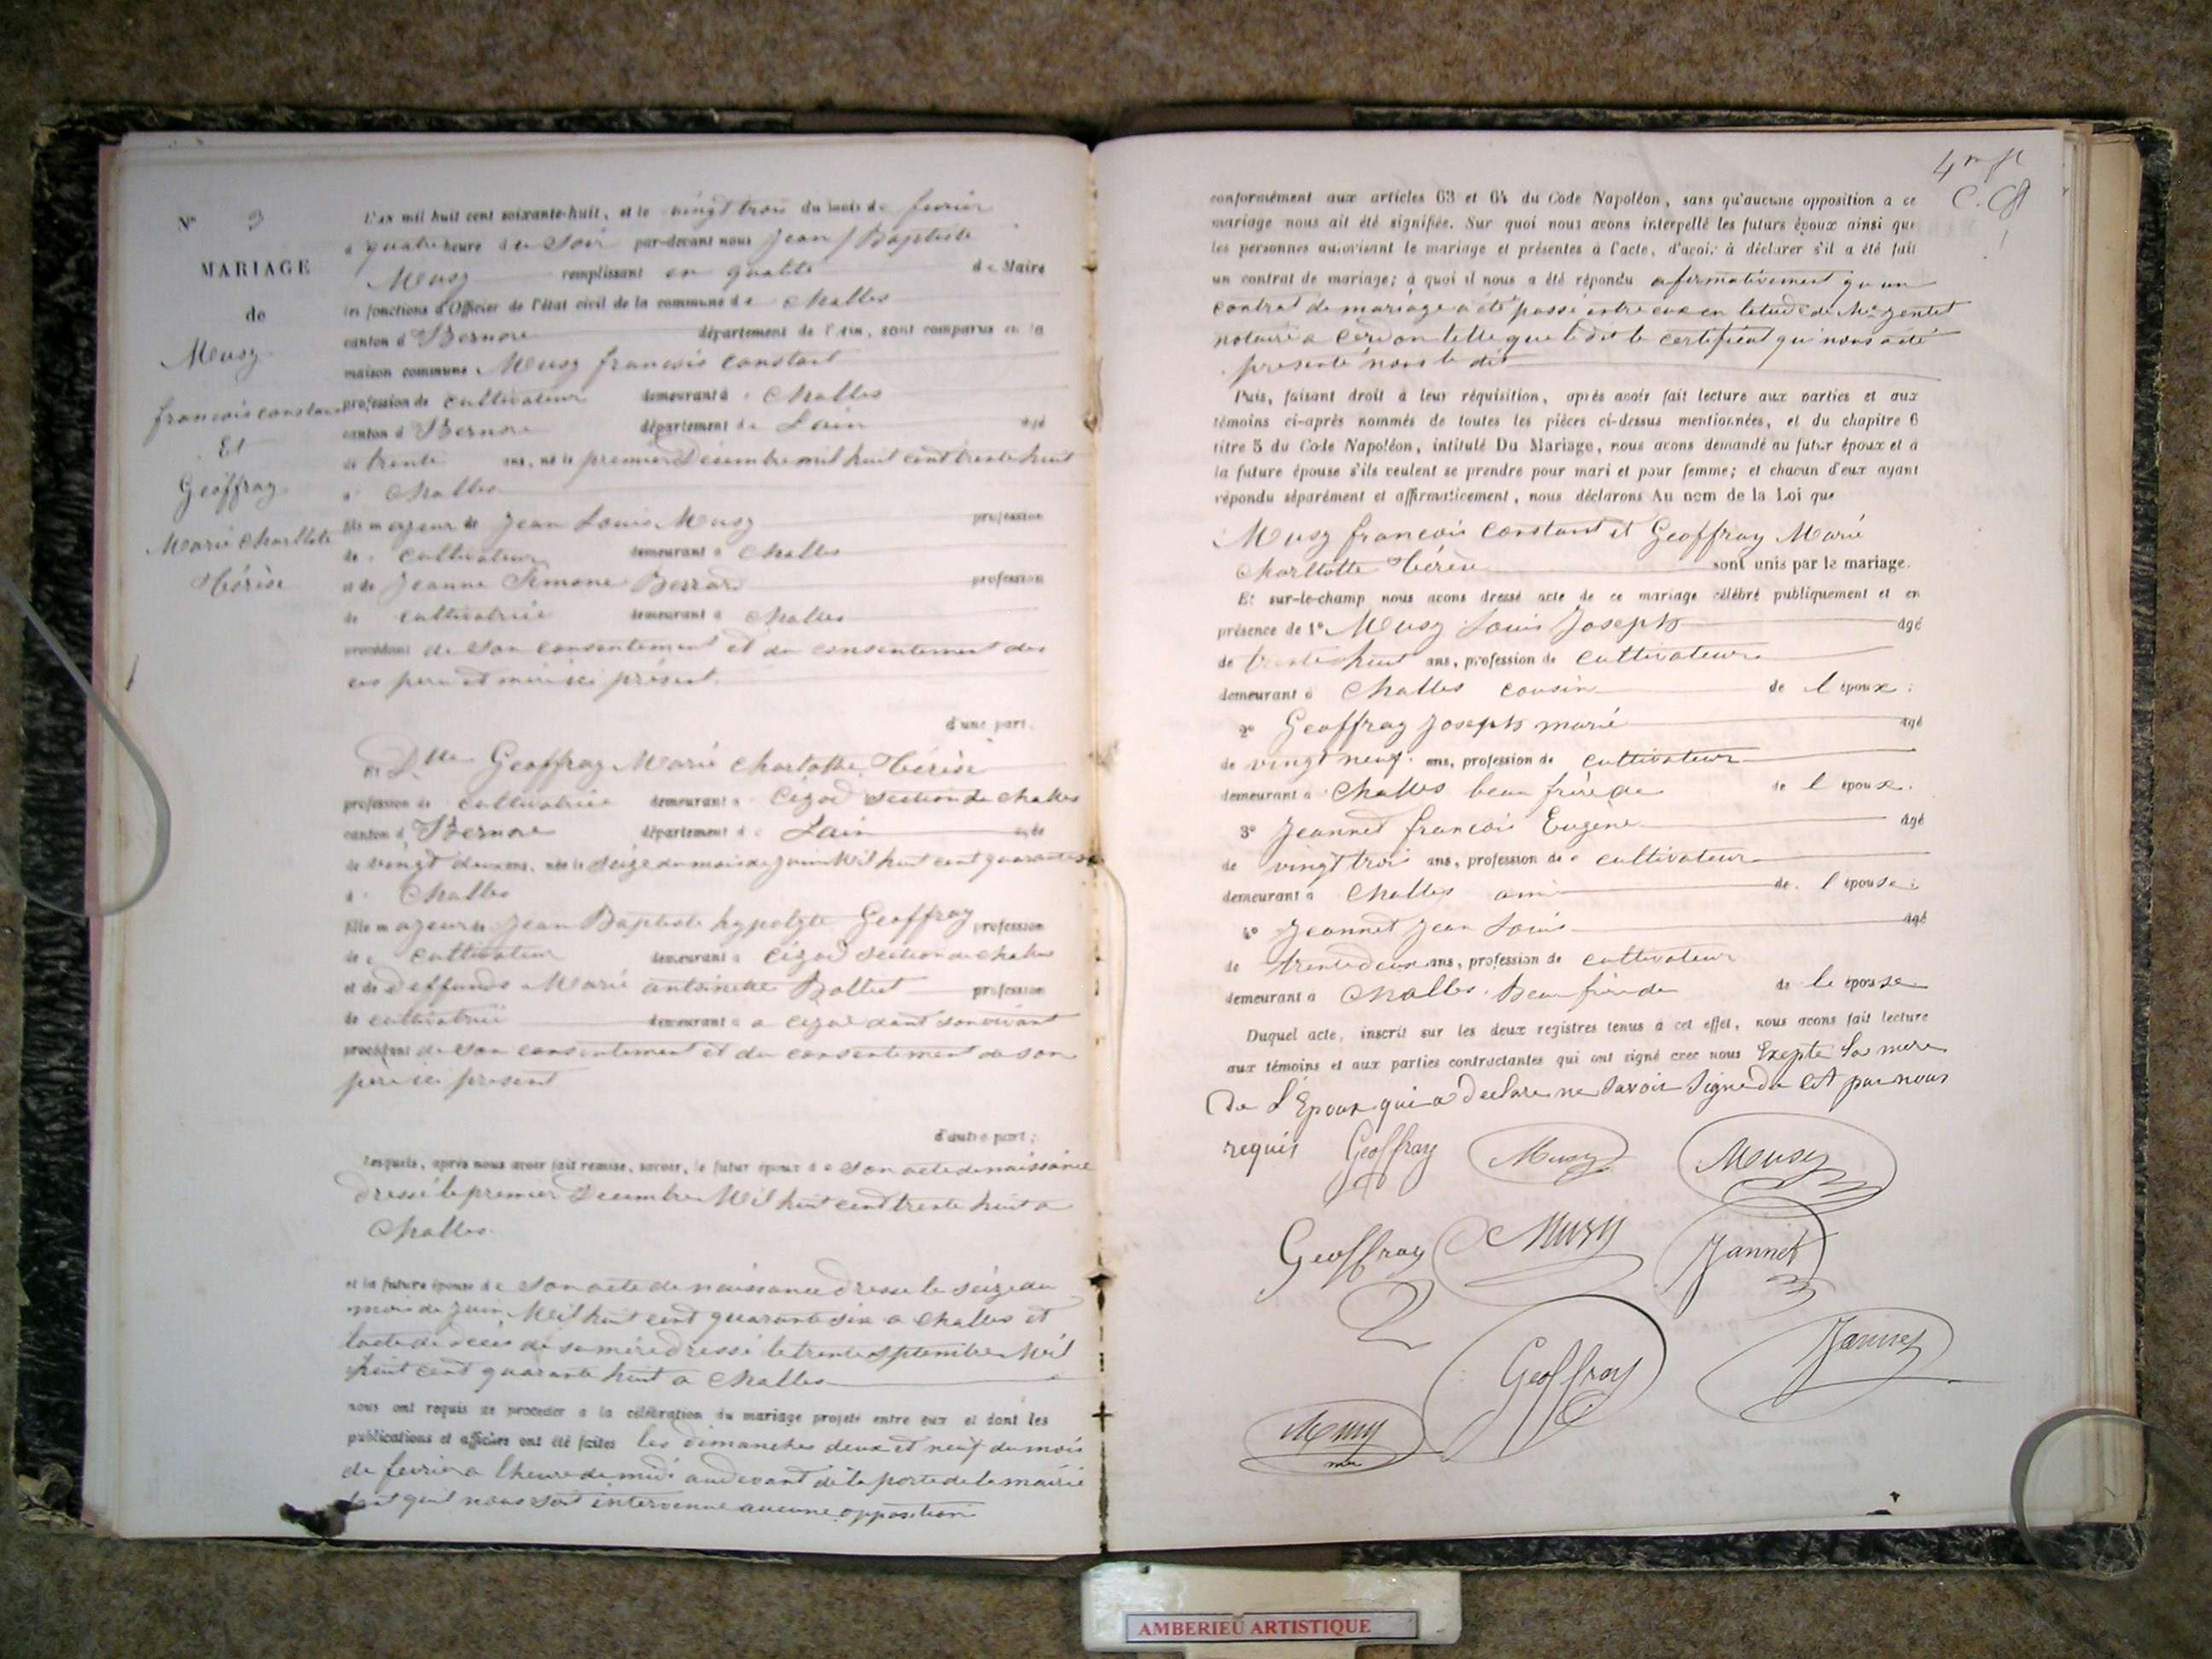 N° 3
MARIAGE
de
Musy
francois constant
Et
Geoffray
Marie Charllote
Térèse
L'an mil huit cent soixante-huit, et le vingt trois du mois de fevrier
à quatre heure du Soir par-devant nous Jean Baptiste
Musy remplissant en qualité de Maire
les fonctions d'Officier de l'état civil de la commune de Challes
canton d Izernore département de l'Ain, sont comparus en la
maison commune Musy francois constant
profession de cultivateur demeurant à Challes
canton d Izernore département de Lain agé
de trente ans, né le premier Décembre mil huit cent trente huit
à Challes
fils majeur de Jean Louis Musy profession
de cultivateur demeurant à Challes
et de Jeanne Simone Berrard profession
de cultivatrice demeurant à Challes
procédant de son consentement et du consentement des
ces pere et mère ici présent.
d'une part.
et Dlle Geoffray Marie Charlotte Térèse
profession de cultivatrice demeurant à Cizod section de challes
canton d Izernore département de Lain agée
de vingt deux ans, née le seize du mois de juin Mil huit cent quarante six
à Challes
fille majeure de Jean Baptiste hypolyte Geoffray profession
de cultivateur demeurant à Cizod section de challes
et de deffunds Marie antoinette Bollet profession
de cultivatrice demeurant à a cizod dant son vivant
procédant de son consentement et du consentement de son
père ici present
d'autre part;
Lesquels, après nous avoir fait remise, savoir, le futur époux de son acte de naissance
dressé le premier Decembre Mil huit cent trente huit a
Challes
et la future épouse de son acte de naissance dressé le seize du
mois de juin Mil huit cent quarante six a Challes et
lacte de deces de sa mère dressé le trente septembre Mil
huit cent quarante huit a Challes
nous ont requis de procéder à la célébration du mariage projeté entre eux et dont les
publications et affiches ont été faites les dimanches deux et neuf du mois
de fevrier a lheure de midi audevant de la porte de la mairie
quil nous soit intervenue aucune opposition
4me f
conformément aux articles 63 et 64 du Code Napoléon, sans qu'aucune opposition à ce
mariage nous ait été signifiée. Sur quoi nous avons interpellé les futurs époux ainsi que
les personnes autorisant le mariage et présentes à l'acte, d'avoir à déclarer s'il a été fait
un contrat de mariage; à quoi il nous a été répondu afirmativement qu un
contrat de mariage a été passé entre eux en letude de Me gentet
notaire a cerdon telle que le dit le certificat qui nous a été
presenté nous le dit
Puis, faisant droit à leur réquisition, après avoir fait lecture aux parties et aux
témoins ci-après nommés de toutes les pièces ci-dessus mentionnées, et du chapitre 6
titre 5 du Code Napoléon, intitulé Du Mariage, nous avons demandé au futur époux et à
la future épouse s'ils veulent se prendre pour mari et pour femme; et chacun d'eux ayant
répondu séparément et affirmativement, nous déclarons Au nom de la Loi que
Musy francois constant et Geoffray Marie
Charllotte Térèse sont unis par le mariage.
Et sur-le-champ nous avons dressé acte de ce mariage célébré publiquement et en
présence de 1° Musy Louis Joseph âgé
de trente huit ans, profession de cultivateur
demeurant à Challes cousin de l époux;
2° Geoffray Joseph marie agé
de vingt neuf ans, profession de cultivateur
demeurant à Challes beau frère de de l époux.
3° Jeannet francois Eugène âgé
de vingt trois ans, profession de cultivateur
demeurant à Challes ami de l épouse;
4° Jeannet Jean Louis âgé
de trente deux ans, profession de cultivateur
demeurant à Challes. Beau frère de de le épouse
Duquel acte, inscrit sur les deux registres tenus à cet effet, nous avons fait lecture
aux témoins et aux parties contractantes qui ont signé avec nous Exepté la mere
De l'Epoux qui a declare ne savoir signe de cet par nous
requis Geoffray Musy Musy
Geoffray Musy Jannet
Geoffray Jannet
Musy
AMBERIEU ARTISTIQUE